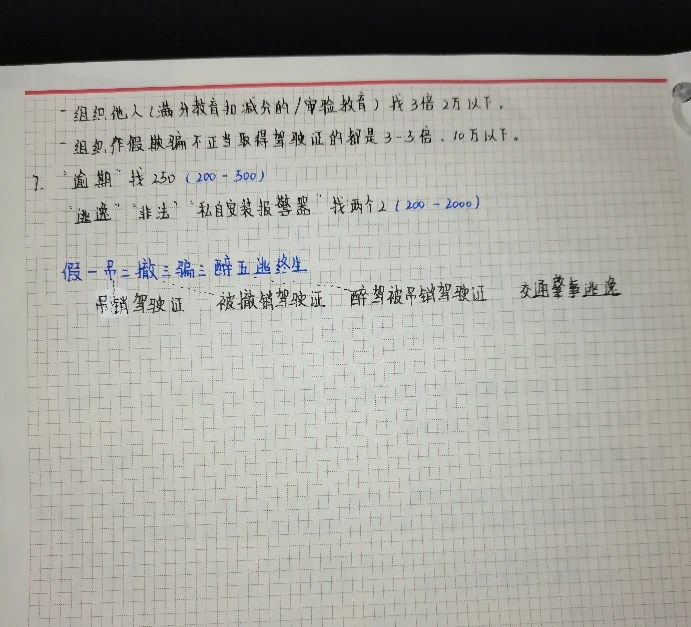 - 组织他人(满分教育和减分的/审验教育)找3倍2万以下。
- 组织作假欺骗不正当取得驾驶证的都是3-3倍、10万以下。
7. "逾期"找250(200-500)
"逃逸""非法""私自安装报警器"找两个2(200-2000)
假一吊二撤三骗三醉五逃终生
吊销驾驶证 被撤销驾驶证 醉驾被吊销驾驶证 交通肇事逃逸